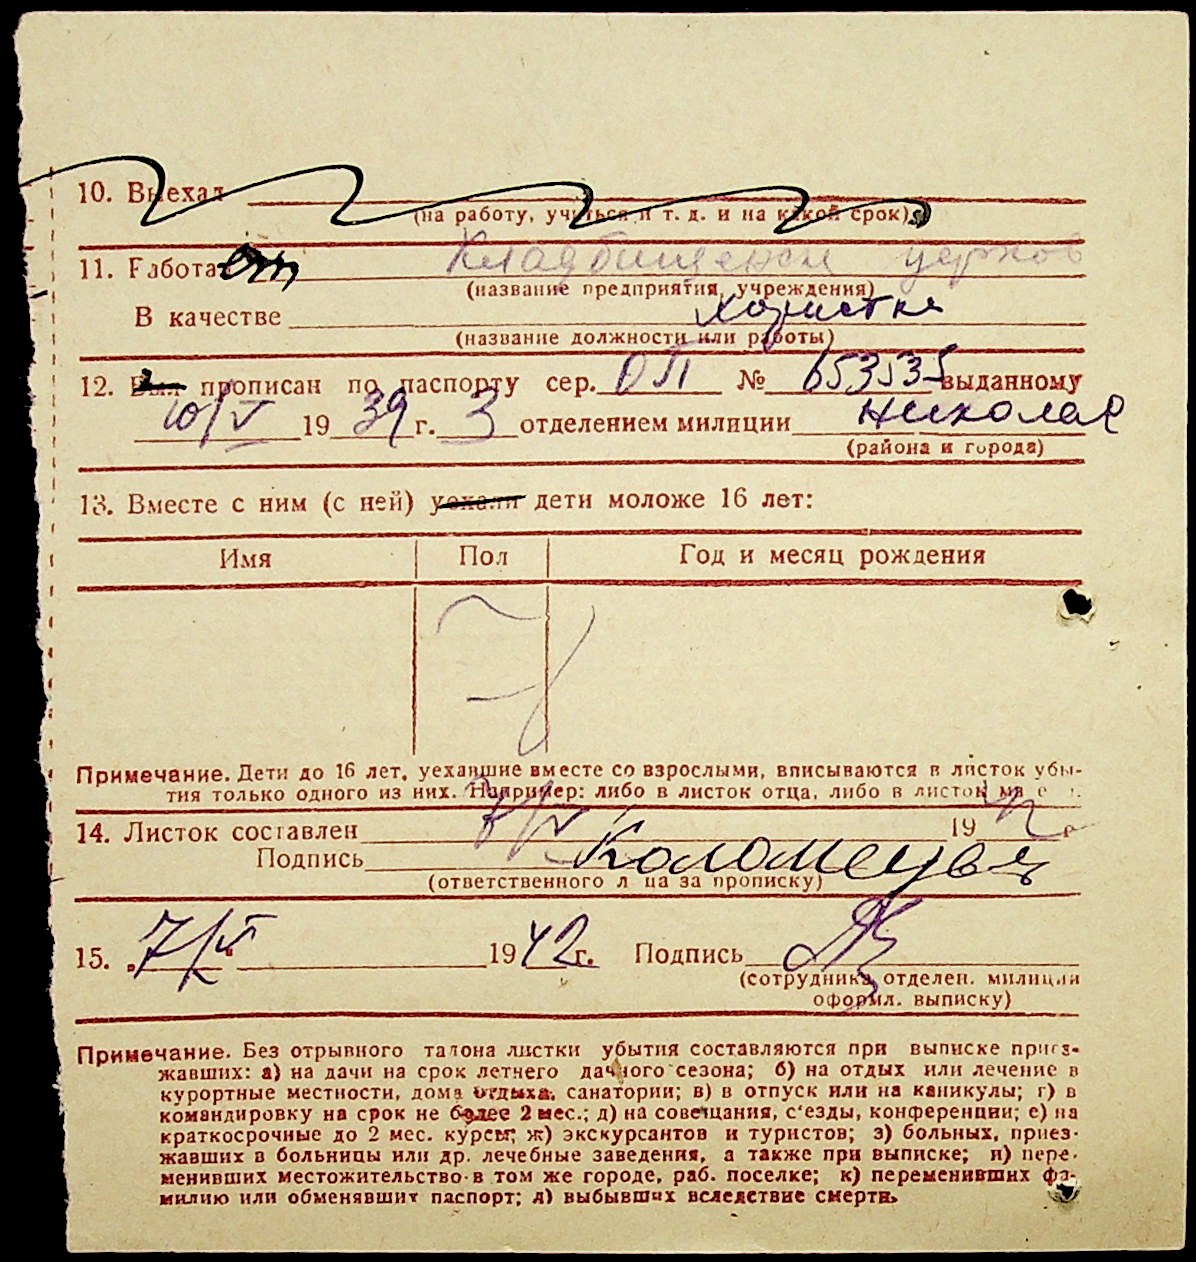 10. Выехал
(на работу, учиться и т. д. и на какой срок)
11. Работает Кладбищенск церков
(название предприятия, учреждения)
В качестве хористки
(название должности или работы)
12. Был прописан по паспорту сер. ОП № 653535 выданному
10/V 1939 г. 3 отделением милиции Николаев
(района и города)
13. Вместе с ним (с ней) уехали дети моложе 16 лет:
Имя Пол Год и месяц рождения
Примечание. Дети до 16 лет, уехавшие вместе со взрослыми, вписываются в листок убы-
тия только одного из них. Например: либо в листок отца, либо в листок
14. Листок составлен 7/V 1942 г.
Подпись Коломейцев
(ответственного лица за прописку)
15. „7/V“ 1942 г. Подпись
(сотрудника отделен. милиции
оформл. выписку)
Примечание. Без отрывного талона листки убытия составляются при выписке приез-
жавших: а) на дачи на срок летнего дачного сезона; б) на отдых или лечение в
курортные местности, дома отдыха, санатории; в) в отпуск или на каникулы; г) в
командировку на срок не более 2 мес.; д) на совещания, с'езды, конференции; е) на
краткосрочные до 2 мес. курсы; ж) экскурсантов и туристов; з) больных, приез-
жавших в больницы или др. лечебные заведения, а также при выписке; и) пере-
менивших местожительство в том же городе, раб. поселке; к) переменивших фа-
милию или обменявших паспорт; л) выбывших вследствие смерти.